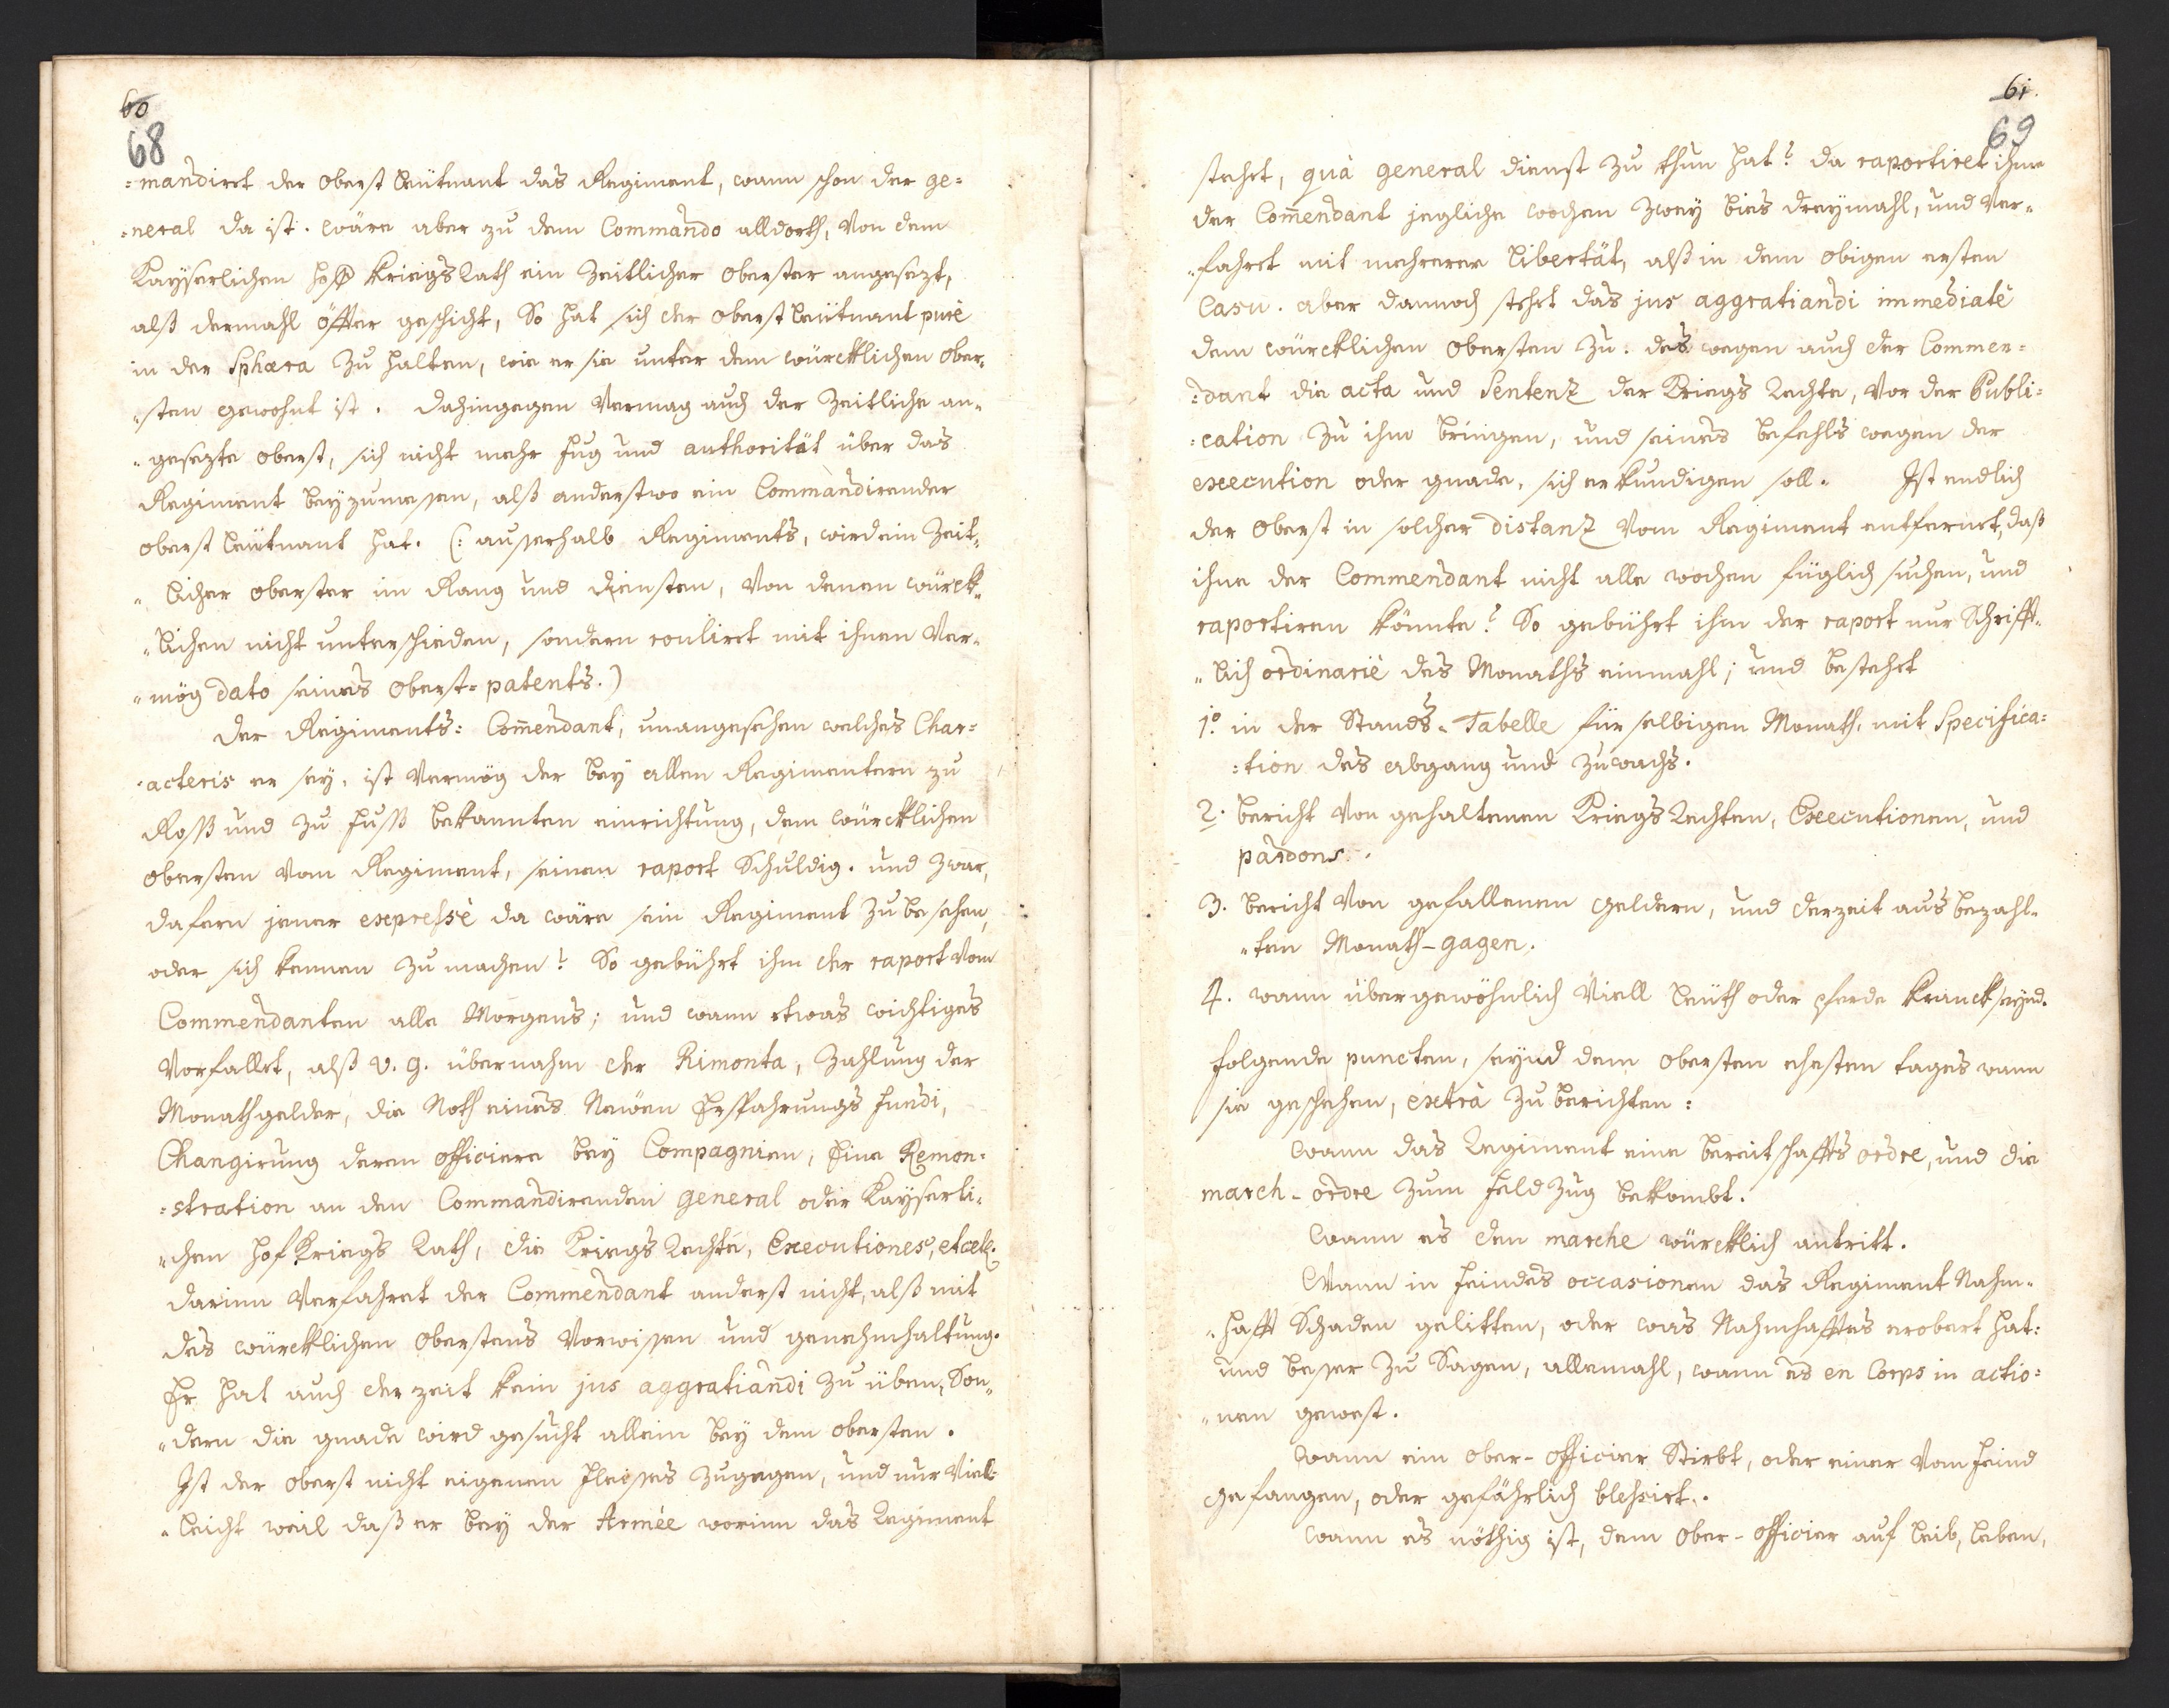 60
68
=mandiret der Oberst Leütnant das Regiment, wann schon der ge=
=neral da ist. Wäre aber zu dem Commando alldorth, Von dem
Kayserlichen Hoff Kriegs Rath ein Zeitlicher Oberster angesezt,
alß dermahl öffter geschicht, So hat sich der Oberst Leütnant purè
in der Sphæra zu halten, wie er sie unter dem würcklichen Ober=
=sten gewohnt ist. Dahingegen Vermag auch der Zeitliche an=
=gesezte Oberst, sich nicht mehr fug und authorität über das
Regiment beyzumessen, alß anderstwo ein Commandirender
Oberst Leütnant hat. (: ausserhalb Regiments, wird ein Zeit=
=licher Oberster im Rang und Diensten, Von denen würck=
=lichen nicht unterschieden, sondern roulirt mit ihnen Ver=
=mög dato seines Oberst=patents.)
Der Regiments: Com̄endant, unangesehen welches Char=
=acteris er sey, ist Vermög der bey allen Regimentern zu
Roß und zu Fuß bekannten einrichtung, dem würcklichen
Obersten vom Regiment, seinen raport Schuldig. und zwar,
dafern jener expressè da wäre sein Regiment zu besehen,
oder sich kennen zu machen? So gebührt ihm der raport vom
Commendanten alle Morgens; und wann etwas wichtiges
Vorfallet, alß v. g. übernahm der Rimonta, Zahlung der
Monathgelder, die Noth eines Neüen Ersparungs Fundi,
Changirung deren officiere bey Compagnien, Eine Remon=
=stration an den Commandirenden General oder Kayserli=
=chen Hof Kriegs Rath, die Kriegs Rechte, Executiones, etcet.
darinn Verfahret der Commendant anderst nicht, alß mit
des würcklichen Obersten Vorwissen und genehmhaltung.
Er hat auch der zeit kein jus aggratiandi zu üben, Son=
=dern die gnade wird gesucht allein bey dem Obersten.
Ist der Oberst nicht eigenen Fleisses zugegen, und nur Viel=
=leicht weil daß er bey der Armée worinn das Regiment
61.
69
stehet, quà General dienst zu thun hat? da raportiret ihm
der Com̄endant jegliche wochen zwey bies dreymahl, und Ver=
=fahret mit mehrerer Libertät, alß in dem obigen ersten
Casu. aber dannoch stehet das jus aggratiandi immediatè
dem würcklichen Obersten zu. deswegen auch der Commen=
=dant die acta und Sentenz der Kriegs Rechte, Vor der Publi=
=cation zu ihm bringen, und seines befehls wegen der
execution oder gnade, sich erkundigen soll. Ist endlich
der Oberst in solcher distanz vom Regiment entfernet, daß
ihne der Commendant nicht alle wochen füglich suchen, und
raportiren könnte? So gebührt ihm der raport nur Schrifft=
=lich ordinariè des Monaths einmahl; und bestehet
1º. in der Stands=Tabelle für selbigen Monath, mit Specifica=
=tion des abgang und zuwachs.
2. bericht von gehaltenen Kriegs Rechten, Executionen, und
pardons.
3. bericht Von gefallenen geldern, und derzeit ausbezahl=
=ten Monath-gagen.
4. wann übergewöhnlich Viell Leüth oder pferde kranck seynd.
folgende puncten, seynd dem Obersten ehesten tages wann
sie geschehen, extrà zu berichten:
Wann das Regiment eine bereitschaffts ordre, und die
march-ordre zum Feldzug bekombt.
Wann es den marche würcklich antritt.
Wann in Feindes occasionen das Regiment Nahm=
=hafft Schaden gelitten, oder was Nahmhafftes erobert hat:
und besser zu Sagen, allemahl, wann es en Corps in actio=
=nen gewest.
Wann ein Ober-Officier Stirbt, oder einer Vom Feind
gefangen, oder gefährlich blessirt.
Wann es nöthig ist, dem Ober-Officier auf Leib, Leben,